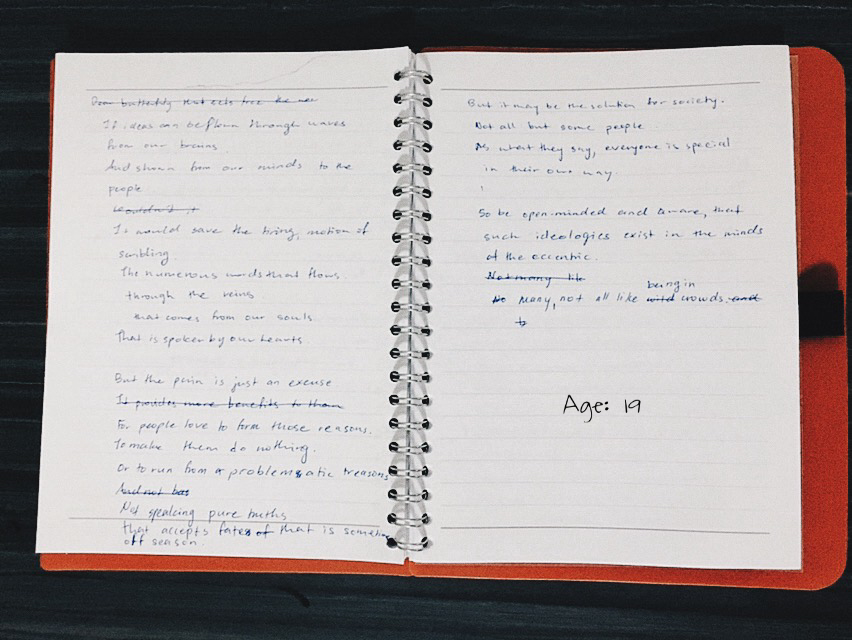 Dear butterfly that sets free the
If ideas can be flown through waves
from our brains
And shown from our minds to the
people
Wouldn't it
It would save the tiring, motion of
scribling.
The numerous words that flows
through the veins
that comes from our souls
That is spoken by our hearts
But the pain is just an excuse
It provides more benefits to them
For people love to form those reasons.
To make them do nothing.
Or to run from a problematic treasons
And not bas
Not speaking pure truths
that accepts fates of that is sometimes
off season.
But it may be the solution for society.
Not all but some people.
As what they say, everyone is special
in their own way.
So be open-minded and aware, that
such ideologies exist in the minds
of the eccentric.
Not many like
being in
No Many, not all like wild crowds and
b
Age: 19